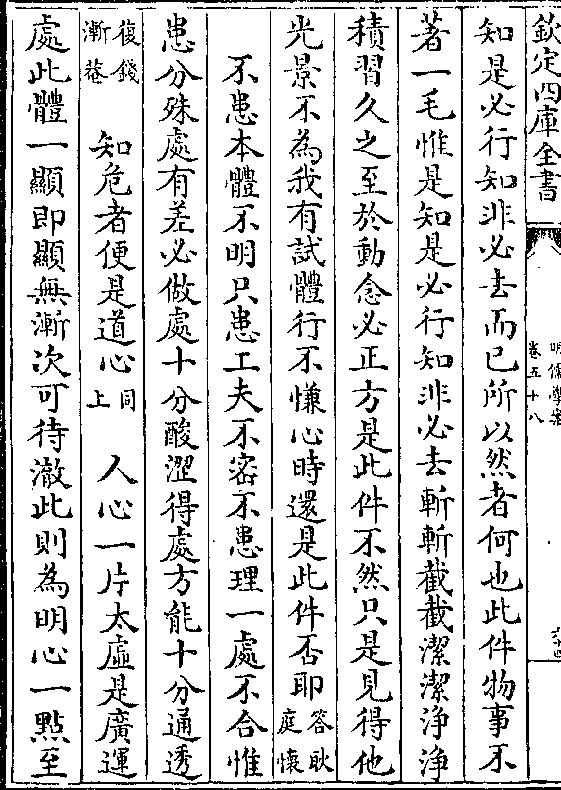 欽定四庫全書
明儒學案
卷五十八
六十四
知是必行知非必去而已所以然者何也此件物事不
著一毛惟是知是必行知非必去斬斬截截潔潔淨淨
積習久之至於動念必正方是此件不然只是見得他
光景不為我有試體行不慊心時還是此件否耶答耿庭懷
不患本體不明只患工夫不密不患理一處不合惟
患分殊處有差必做處十分酸澀得處方能十分通透
復錢漸菴 知危者便是道心同上 人心一片太虛是廣運
處此體一顯即顯無漸次可待澈此則為明心一點至